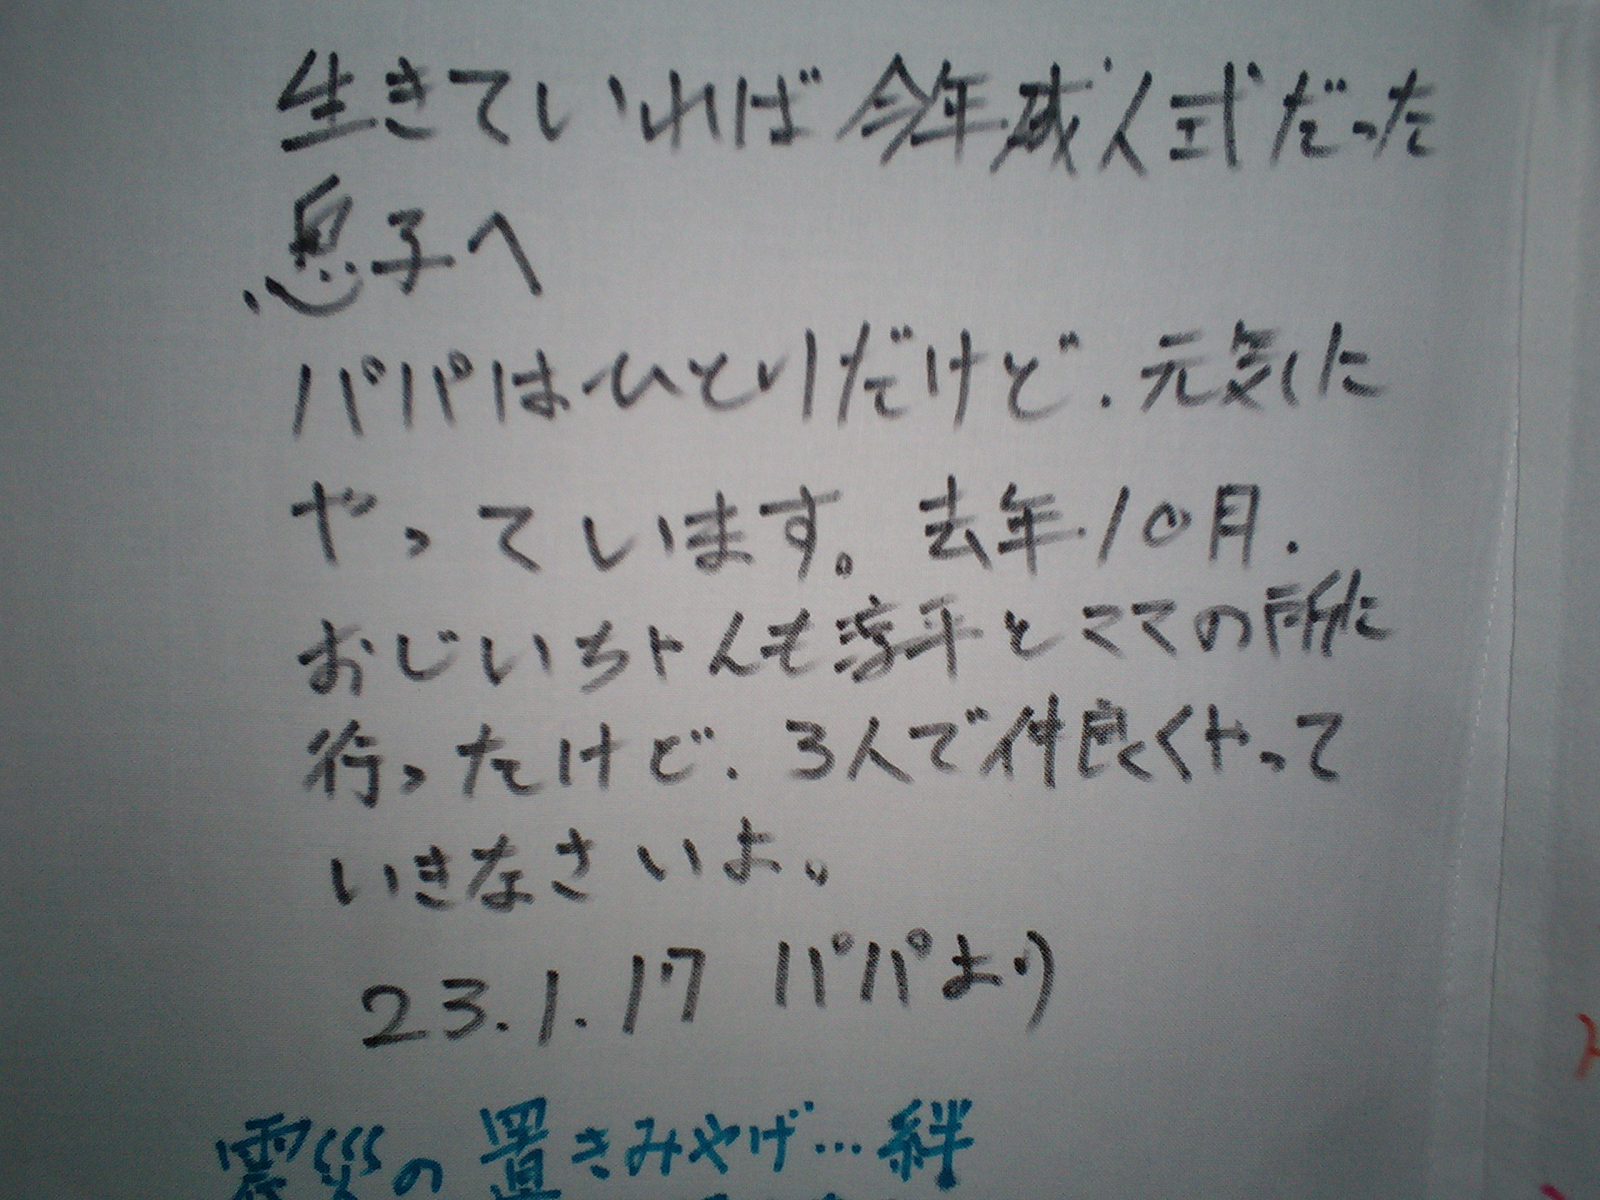 生きていれば今年成人式だった
息子へ
パパはひとりだけど.元気に
やっています。去年10月.
おじいちゃんも淳平とママの所に
行ったけど.3人で仲良くやって
いきなさいよ。
23.1.17 パパより
震災の置きみやげ…絆